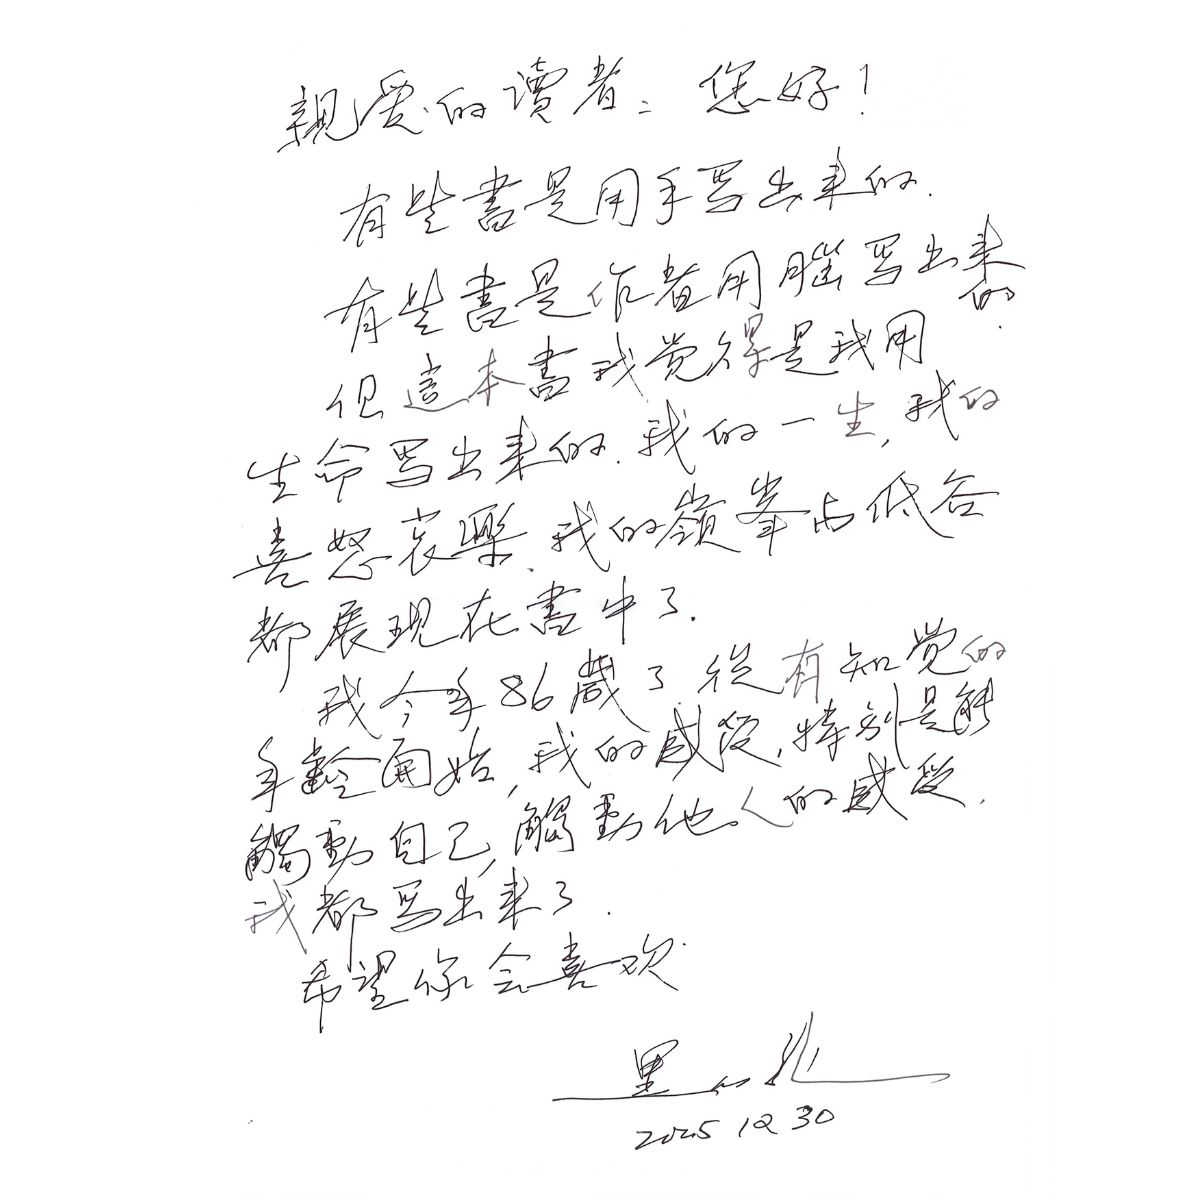 親爱的讀者：您好！
有些書是用手写出来的.
有些書是作者用腦写出来
的.
但這本書我覚得是我用
生命写出来的.我的一生,我的
喜怒哀樂.我的巔峯与低谷
都展现在書中了.
我今年86歲了.從有知覚的
年齡開始,我的感受,特别是能
觸動自己,觸動他人的感受.
我都写出来了.
希望你会喜欢.
2025 12 30